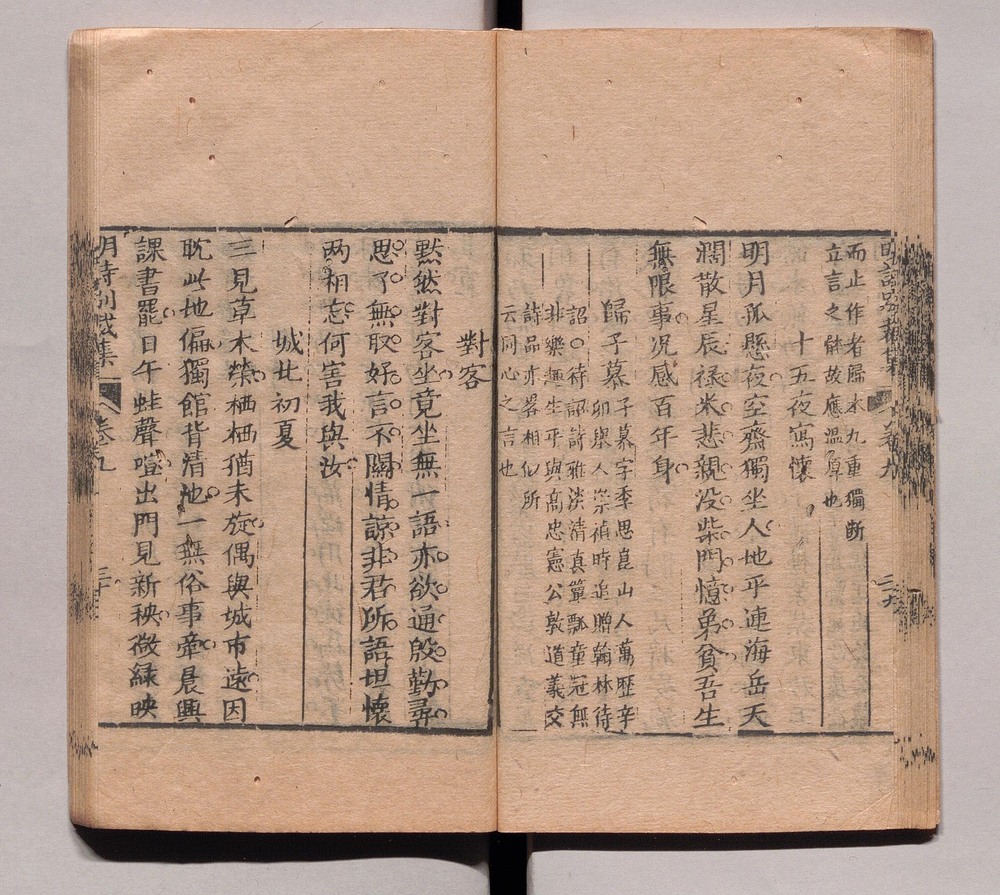 而止作者歸本九重獨斷
立言之體故應溫厚也
十五夜寫懷
明月孤懸夜空齋獨坐人地平連海岳天
濶散星辰祿米悲親没柴門憶弟貧吾生
無限事况感百年身
歸子慕
子慕字季思崑山人萬歷辛
卯舉人崇禎時追贈翰林待
詔○待詔詩雅淡清真簞瓢童冠無
非樂趣生平與高忠憲公敦道義交
詩品亦畧相似所
云同心之言也
對客
默然對客坐竟坐無一語亦欲通殷勤尋
思了無取好言不關情諒非君所語坦懷
两相忘何害我與汝
城北初夏
三見草木榮栖栖猶未旋偶與城市遠因
耽此地偏獨館背清池一無俗事牽晨興
課書罷日午蛙聲喧出門見新秧微緑映
明詩别裁集
卷九
三十